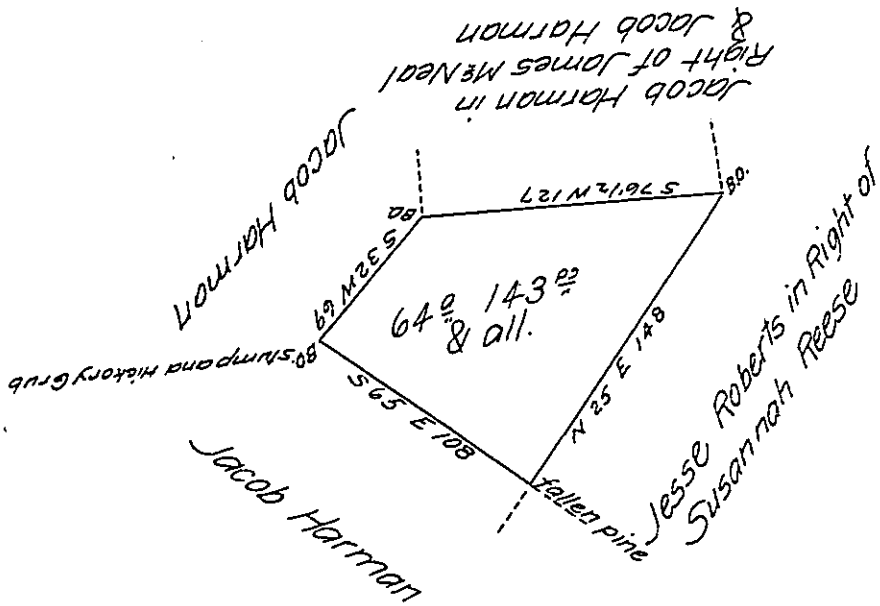 Jacob Harman in
Right of James McNeal
& Jacob Harman
Jacob Harmon
S 76 1/2 W 127
B.O.
BO
S 32 W 69
64 a 143 ps
& all.
BO stump and Hickory Grub
S 65 E 108
N 25 E 148
fallen pine
Jesse Roberts in Right of
Susannah Reese
Jacob Harman